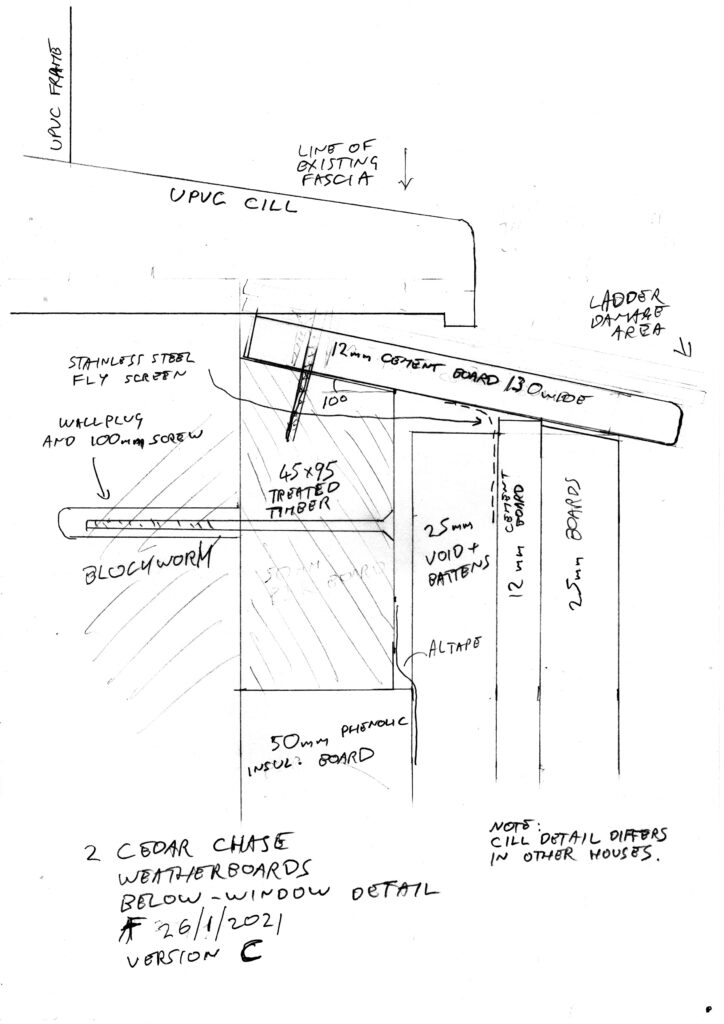 UPVC FRAME
LINE OF
EXISTING
FASCIA
UPVC CILL
LADDER
DAMAGE
AREA
12mm CEMENT BOARD 130 WIDE
STAINLESS STEEL
FLY SCREEN
10°
WALLPLUG
AND 100mm SCREW
45x95
TREATED
TIMBER
BLOCKWORK
25mm
VOID +
BATTENS
12mm CEMENT
BOARD
25mm BOARDS
ALTAPE
50mm PHENOLIC
INSUL: BOARD
NOTE:
CILL DETAIL DIFFERS
IN OTHER HOUSES.
2 CEDAR CHASE
WEATHERBOARDS
BELOW-WINDOW DETAIL
26/1/2021
VERSION C